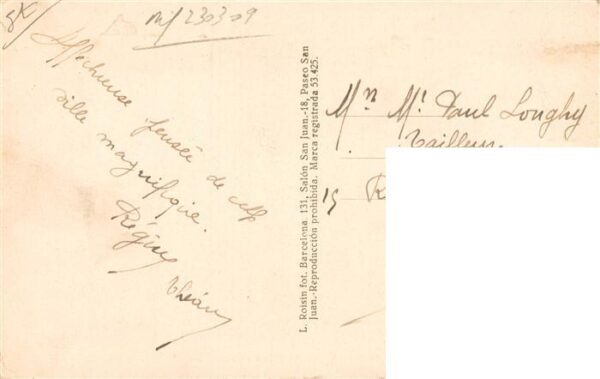 Affectueuse pensée de cette
ville magnifique.
Régine
L. Roisin fot. Barcelona. 131, Salón San Juan.-18, Paseo San
Juan.-Reproducción prohibida. Marca registrada 53.425.
Mr Paul Longhy
Tailleur
15